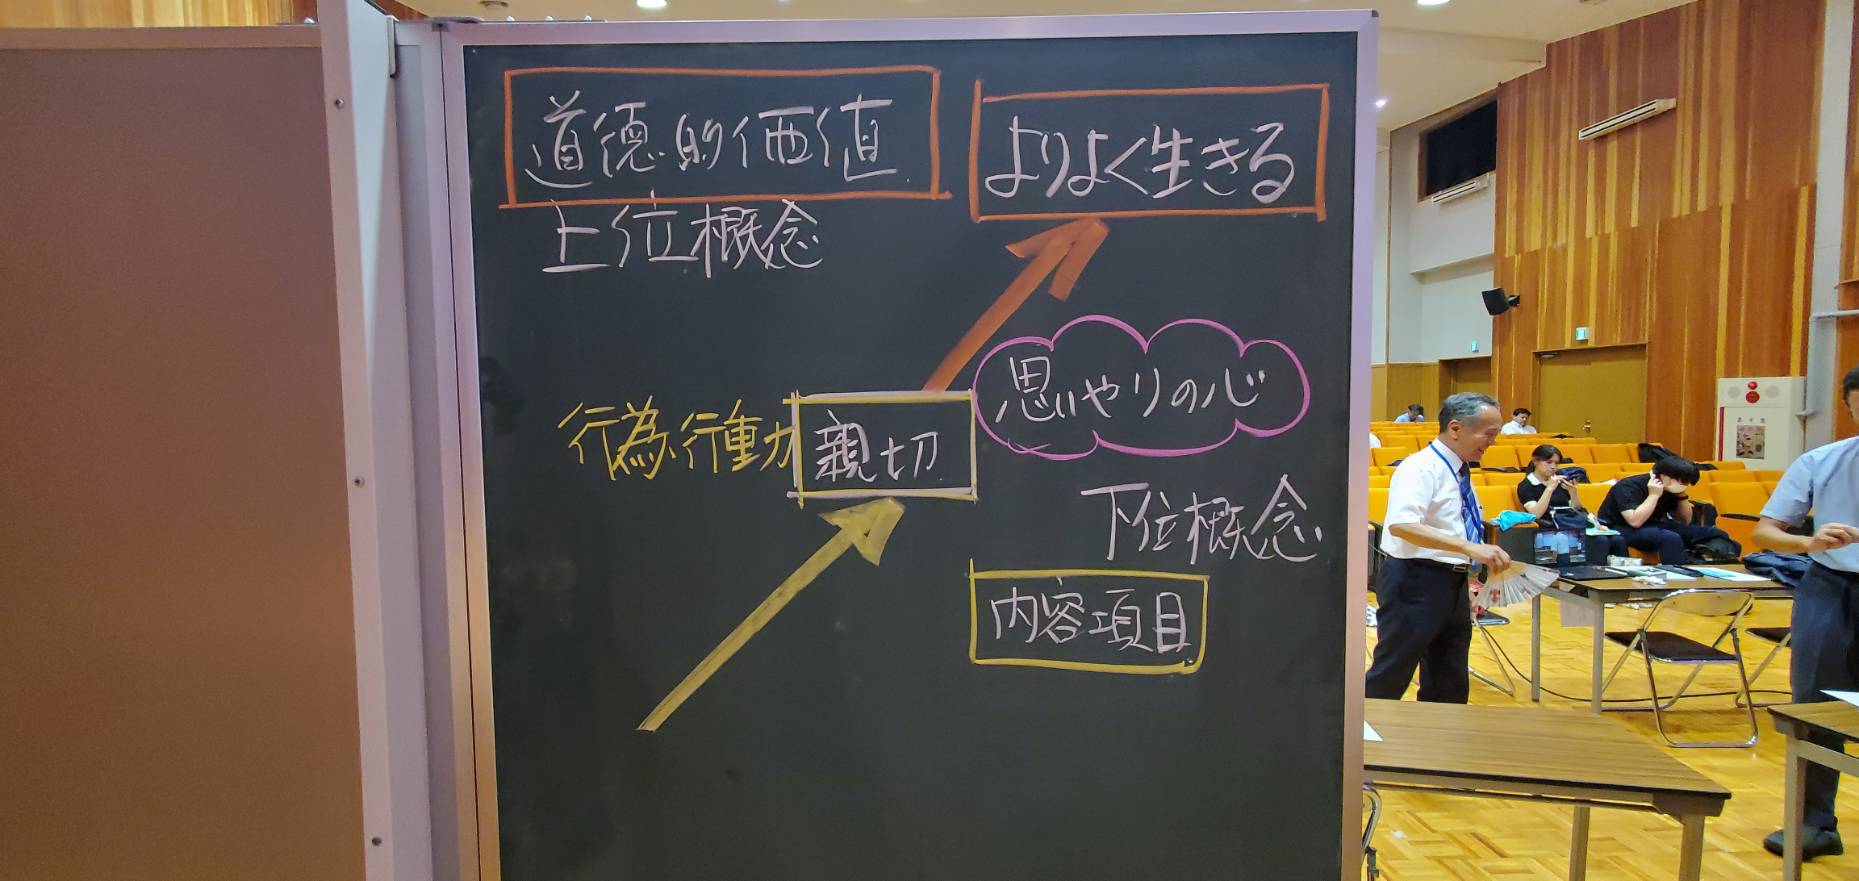 道徳的価値
よりよく生きる
上位概念
思いやりの心
行為・行動
親切
下位概念
内容項目